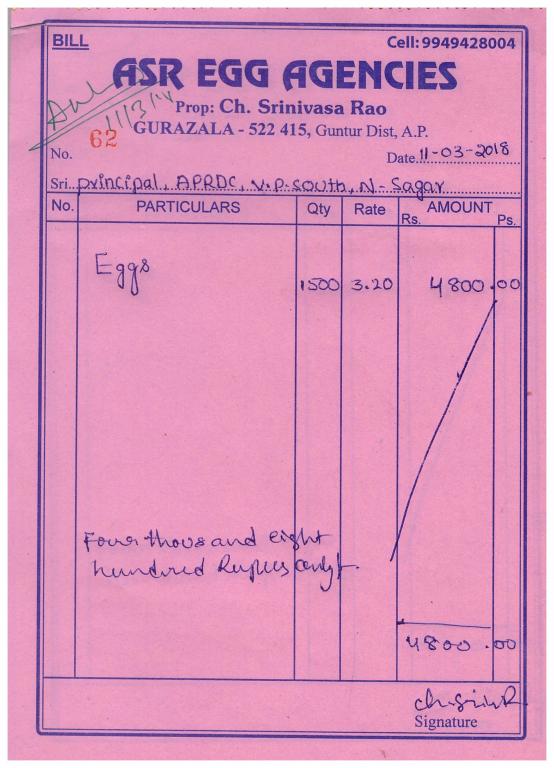 BILL
Cell: 9949428004
ASR EGG AGENCIES
Prop: Ch. Srinivasa Rao
11/3/18
62
GURAZALA - 522 415, Guntur Dist, A.P.
No.
Date. 11-03-2018
Sri. principal, APRDC, V.P. south, N- Sagar
No. PARTICULARS Qty Rate AMOUNT
Rs. Ps.
Eggs
1500 3.20 4800.00
Four thousand eight
hundred Rupees only
4800.00
Signature